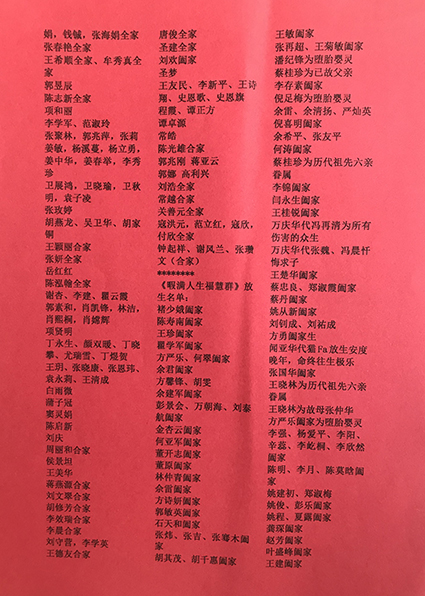 娟、钱铖、张海娟全家
张春艳全家
王希顺全家、牟秀真全
家
郭昱辰
陈志新全家
项和丽
李学军、范淑玲
张聚林、郭兆萍，张莉
姜敏，杨溪蔓，杨立勇，
姜中华，姜春举，李秀
珍
卫展鸿、卫晓瑜，卫秋
明，袁子凌
张玫婷
胡燕龙、吴卫华、胡家
铜
王颖丽合家
张妍全家
岳红红
陈泓翰全家
谢杏、李建、瞿云霞
郭素和，肖凯锋，林洁，
肖熙桐，肖嫦辉
项贤明
丁永生、颜双暖、丁晓
攀、尤瑞雪、丁煜贺
王玥、张晓康、张恩玮、
袁永莉、王清成
白雨微
蒲子冠
窦灵娟
陈启新
刘庆
周丽和合家
侯景坦
王美华
蒋燕源合家
刘文翠合家
胡修芳合家
李效瑞合家
李晨合家
刘守营，李学英
王德友合家
唐俊全家
圣建全家
刘欢阖家
圣梦
王友民、李新平、王诗
翔、史恩歌、史恩旗
程霞、谭正方
谭卓源
常皓
陈光雄合家
郭兆刚 蒋亚云
郭娜 高利兴
刘浩全家
常越合家
关善元全家
寇洪元，范立红，寇欣，
付欣全家
钟起祥、谢凤兰、张瓒
文（合家）
********
《暇满人生福慧群》放
生名单：
褚少娥阖家
陈寿南阖家
王珍阖家
瞿学军阖家
方严乐、何翠阖家
余君阖家
方馨锋、胡雯
余建军阖家
彭景会、万朝海、刘泰
航阖家
金杏云阖家
何亚军阖家
董开志阖家
董原阖家
林仲青阖家
余雷阖家
方诗妍阖家
郭敏英阖家
石天和阖家
张炜、张吉、张骞木阖
家
胡其茂、胡千惠阖家
王敏阖家
张再超、王菊敏阖家
潘纪锋为堕胎婴灵
蔡桂珍为已故父亲
李存素阖家
倪足梅为堕胎婴灵
余雷、余清扬、严灿英
倪喜明阖家
余希平、张友平
何涛阖家
蔡桂珍为历代祖先六亲
眷属
李锦阖家
闫永生阖家
王桂锐阖家
万庆华代冯再清为所有
伤害的众生
万庆华代张巍、冯晨忏
悔求子
王楚华阖家
蔡忠良、郑淑霞阖家
蔡丹阖家
姚从新阖家
刘钊成、刘祐成
方勇阖家生
闻亚华代猫Fa放生安度
晚年，命终往生极乐
张国华阖家
王晓林为历代祖先六亲
眷属
王晓林为故母张仲华
方严乐阖家为堕胎婴灵
李强、杨爱平、李阳、
辛蕊、李屹桐、李欣然
阖家
陈明、李月、陈莫晗阖
家
姚建初、郑淑梅
姚俊、彭乐阖家
姚程、夏露阖家
龚琛阖家
赵芳阖家
叶盛峰阖家
王建阖家